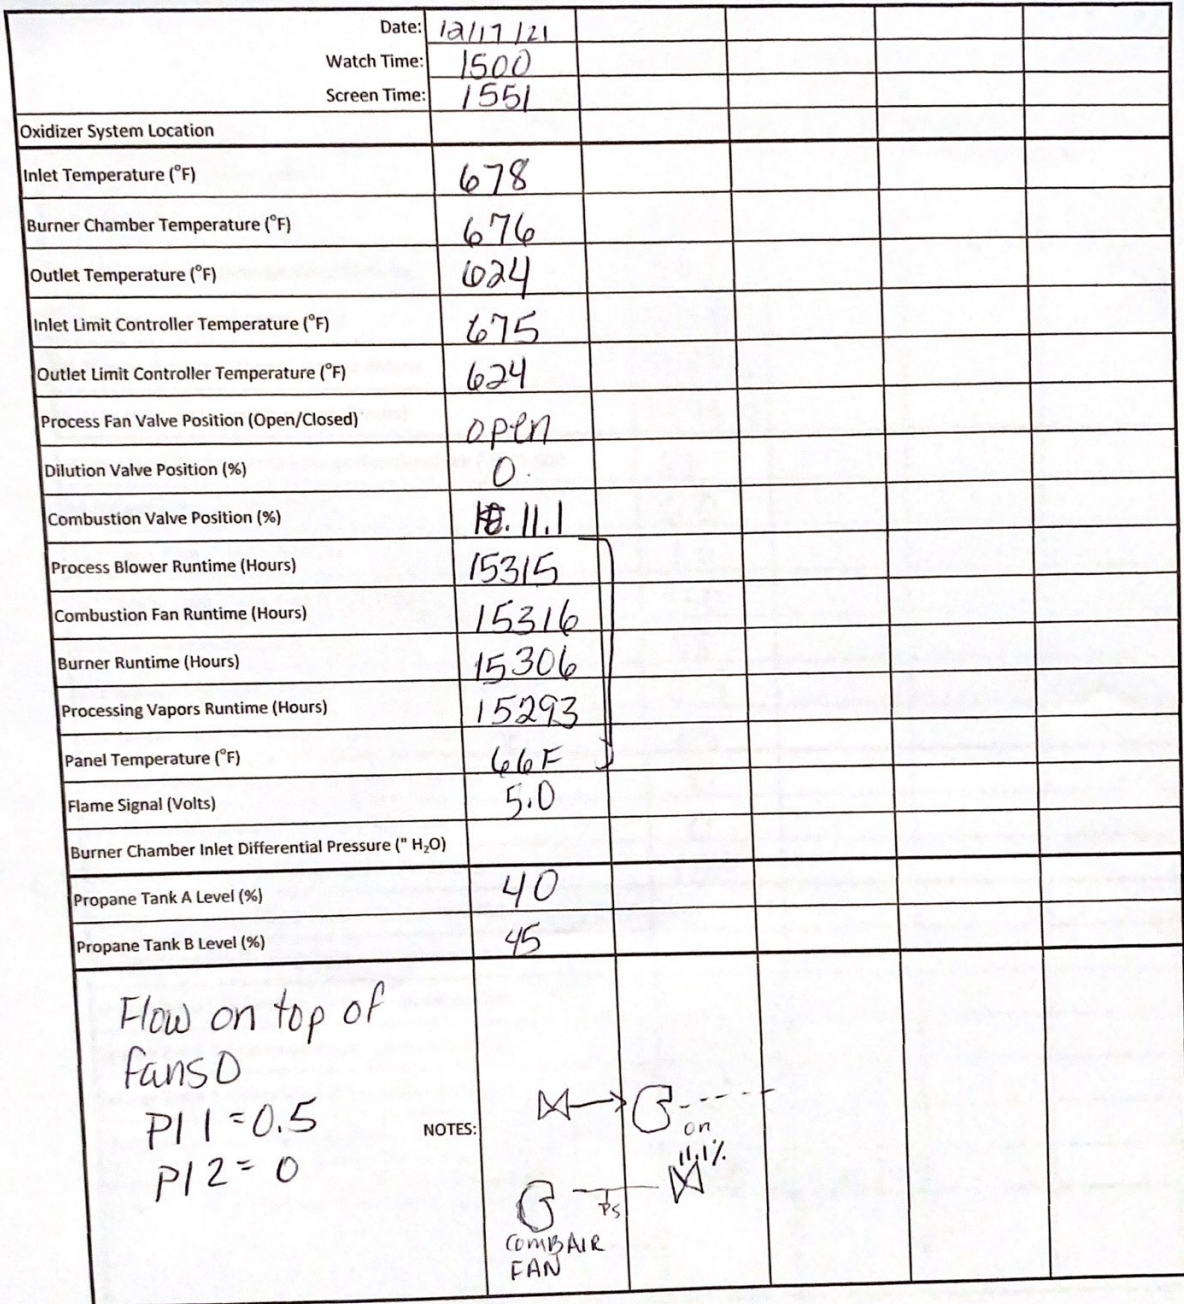 Date: 12/17/21
Watch Time: 1500
Screen Time: 1551
Oxidizer System Location
Inlet Temperature (°F) 678
Burner Chamber Temperature (°F) 676
Outlet Temperature (°F) 624
Inlet Limit Controller Temperature (°F) 675
Outlet Limit Controller Temperature (°F) 624
Process Fan Valve Position (Open/Closed) open
Dilution Valve Position (%) 0
Combustion Valve Position (%) 11.1
Process Blower Runtime (Hours) 15315
Combustion Fan Runtime (Hours) 15316
Burner Runtime (Hours) 15306
Processing Vapors Runtime (Hours) 15293
Panel Temperature (°F) 66F
Flame Signal (Volts) 5.0
Burner Chamber Inlet Differential Pressure (" H₂O)
Propane Tank A Level (%) 40
Propane Tank B Level (%) 45
Flow on top of
fans 0
PI 1 = 0.5
PI 2 = 0
NOTES:
on
11.1%
PS
COMB AIR
FAN